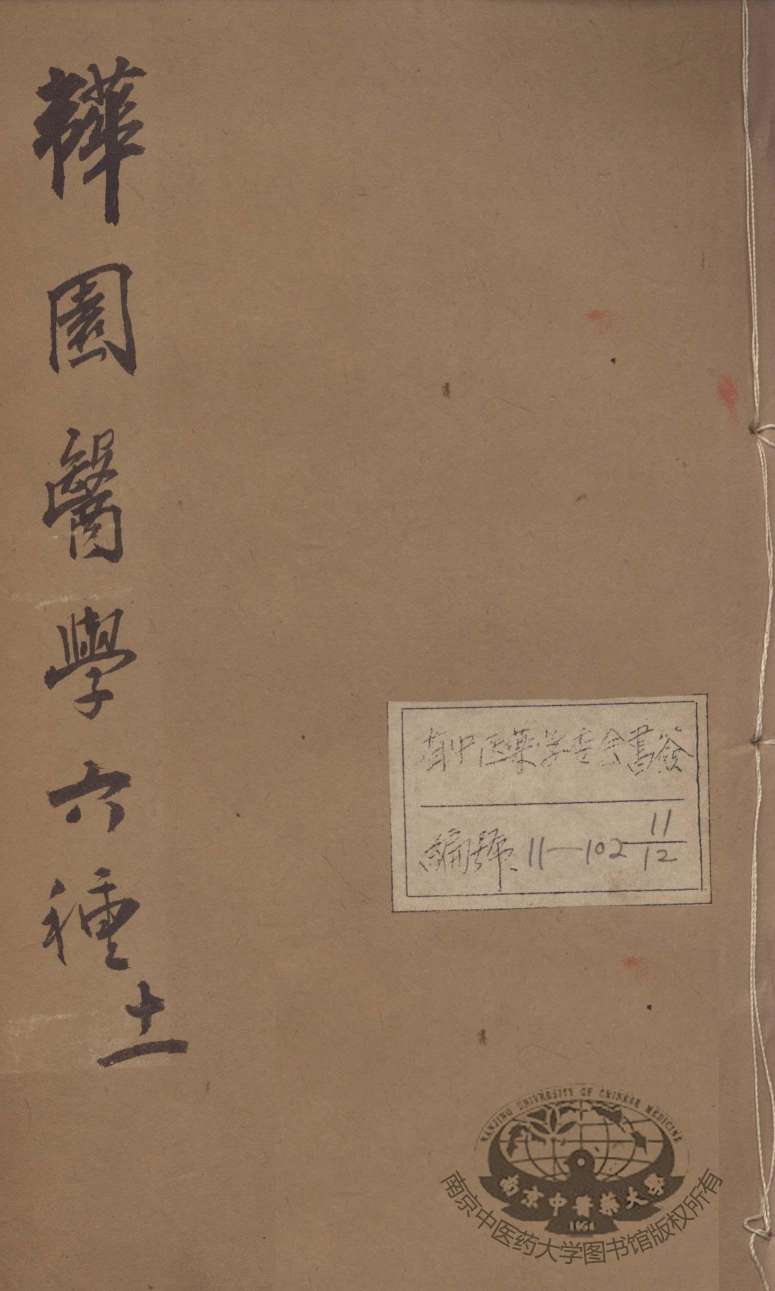 韡園醫學六種
十一
省中医藥学委会書簽
編號 11—102 11/12
NANJING UNIVERSITY OF CHINESE MEDICINE
南京中醫藥大學
1954
南京中医药大学图书馆版权所有